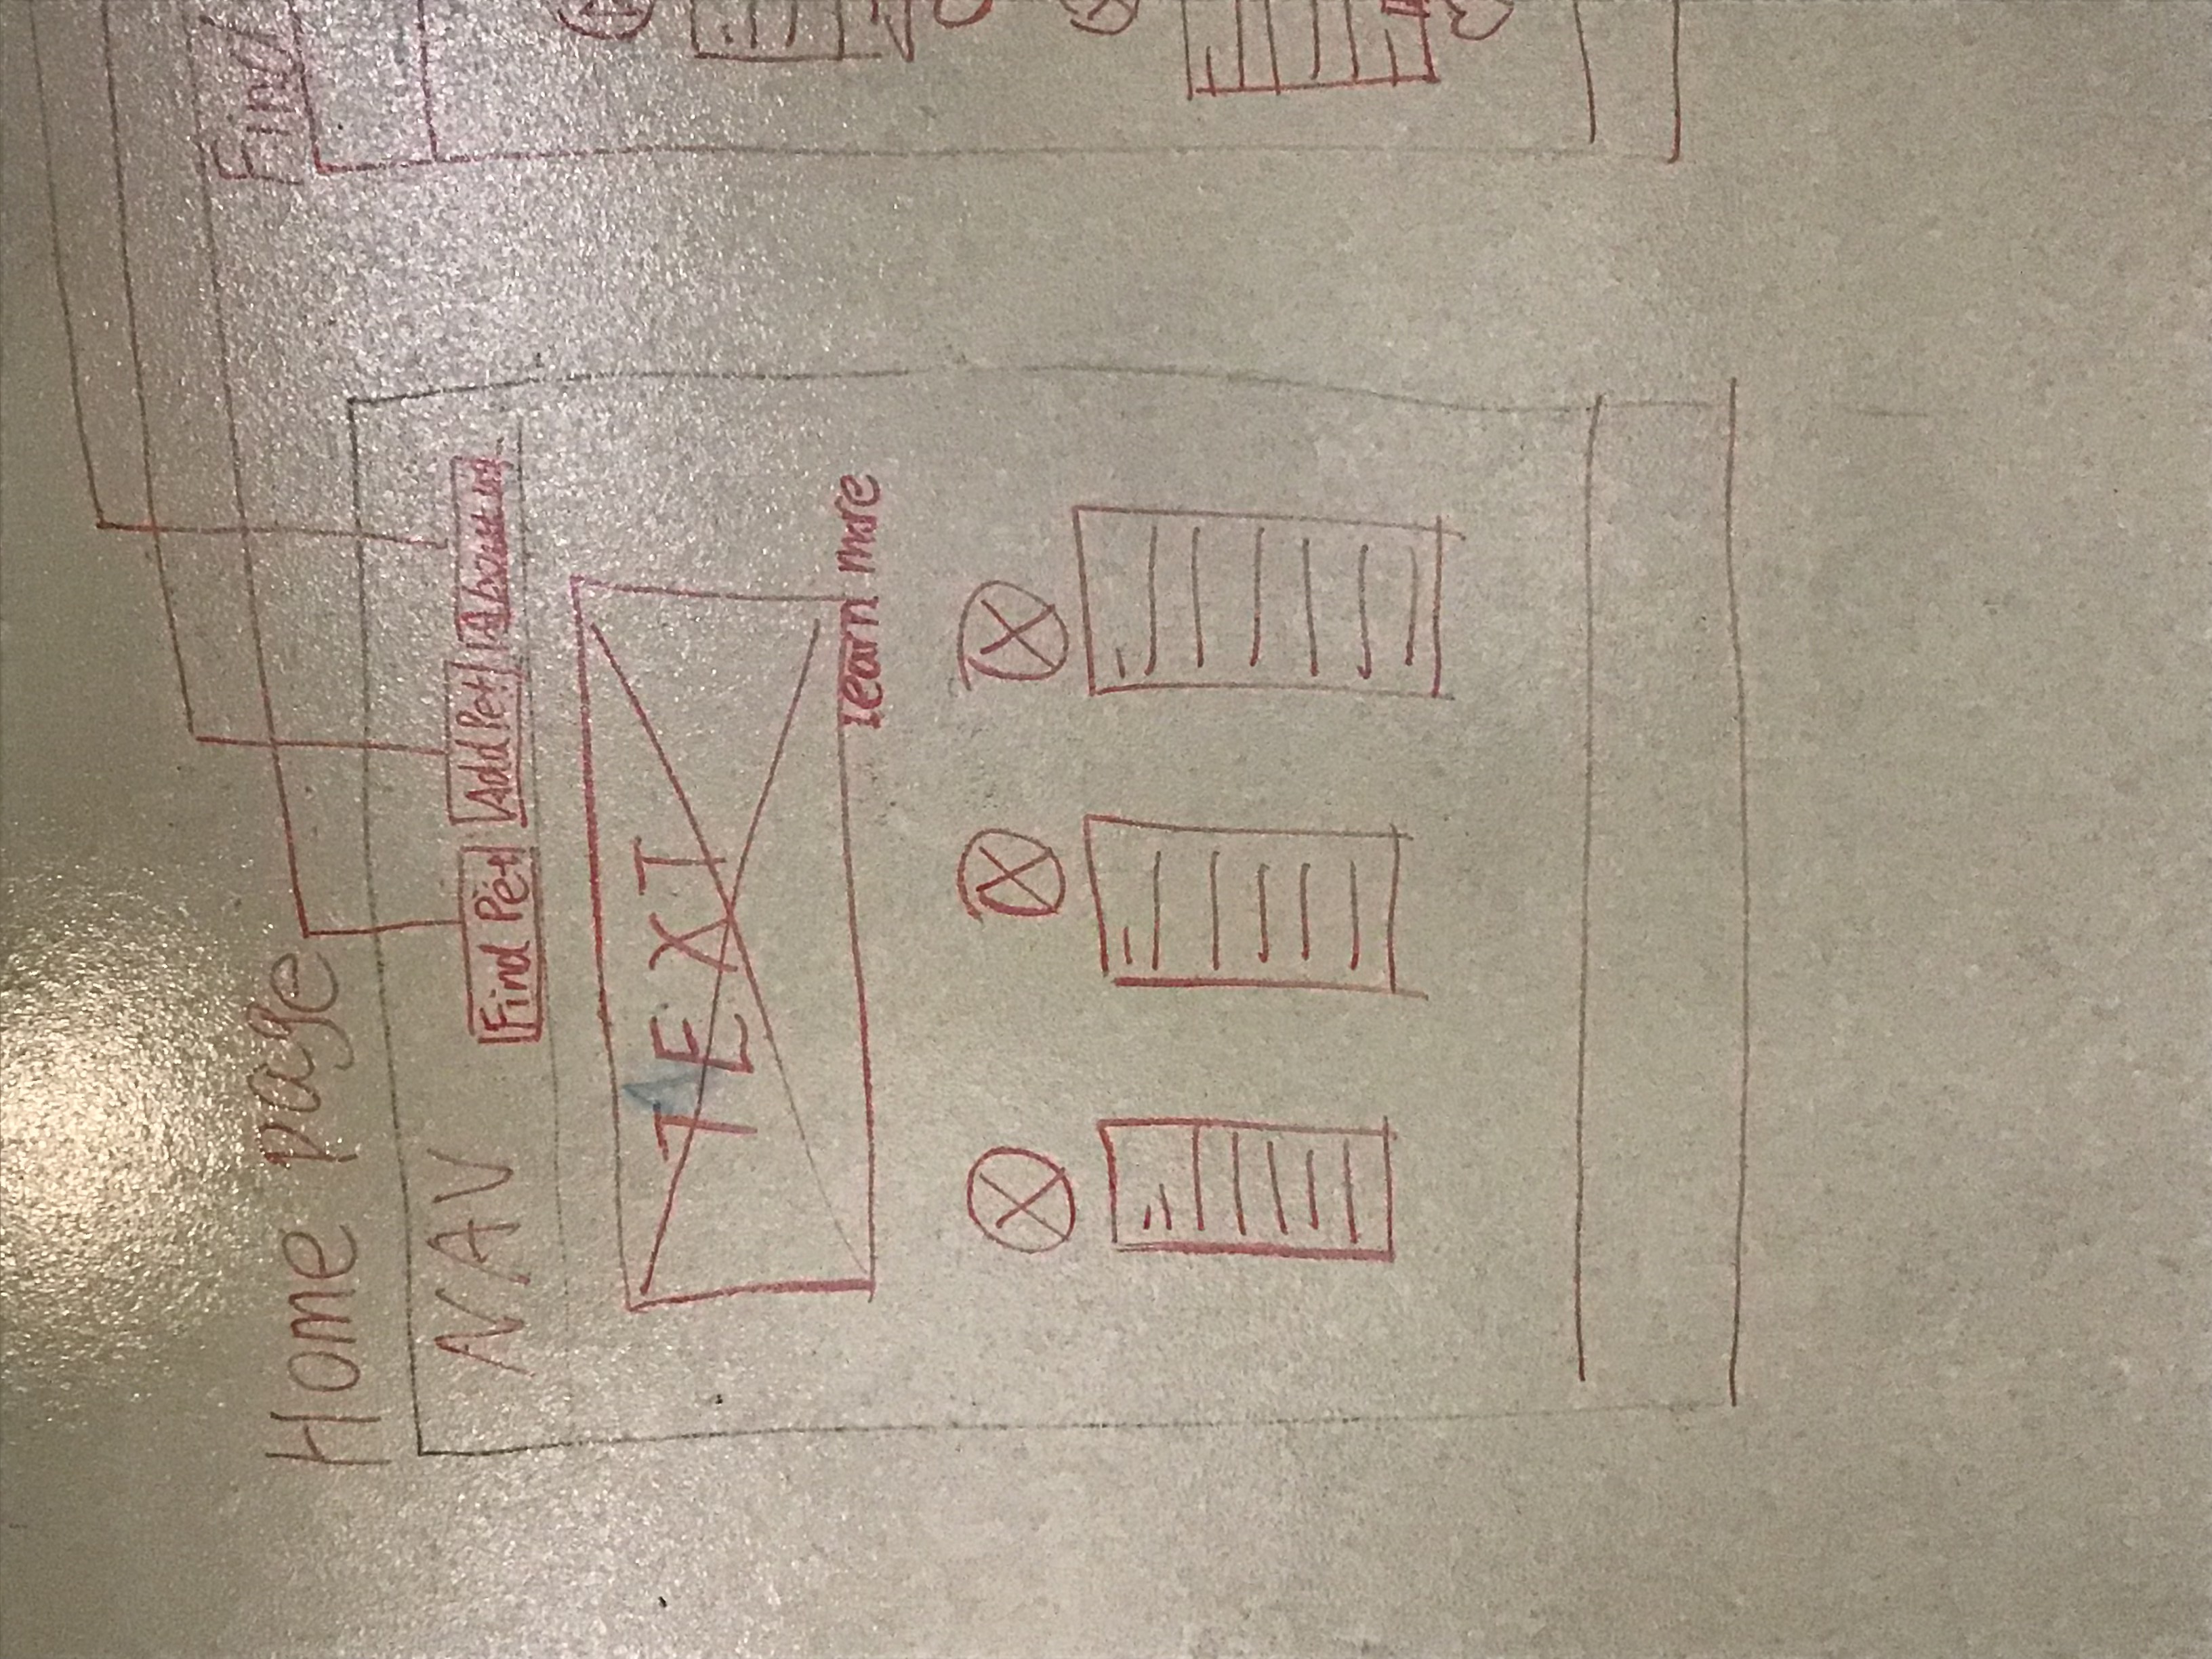 Home page
Find
NAV
Find Pet
Add Pet
About us
TEXT
Learn more